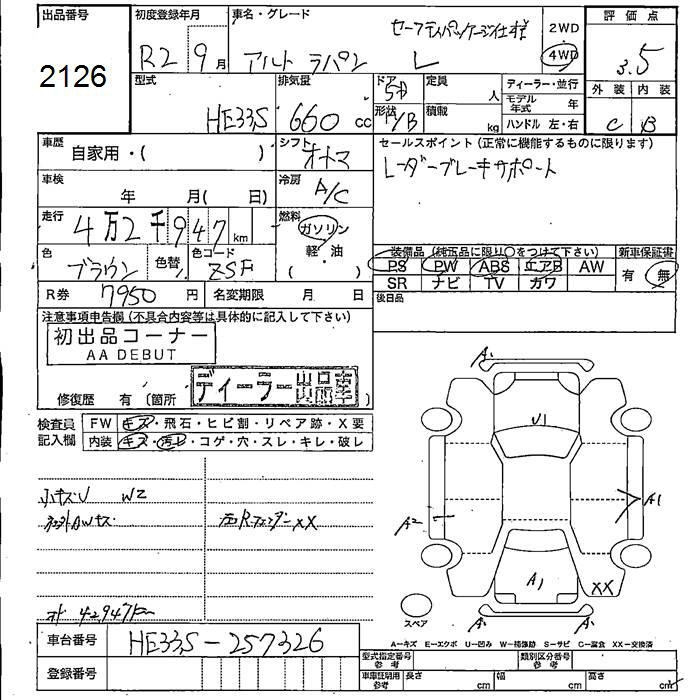 出品番号 初度登録年月 車名・グレード 評価点
2126 R2 9月 アルト ラパン セーフティパッケージ仕様 L 2WD 4WD 3.5
型式 排気量 ドア 定員 ディーラー・並行 外装 内装
HE33S 660 cc 5D 人 モデル年式 年 C B
形状 /B 積載 kg ハンドル 左・右
車歴 自家用・( ) シフト オートマ セールスポイント (正常に機能するものに限ります)
車検 年 月( 日) 冷房 A/C レーダーブレーキサポート
走行 4万2千947km 燃料 ガソリン
軽・油
( )
色 ブラウン 色替 色コード ZSF
装備品 (純正品に限り○をつけて下さい) 新車保証書
PS PW ABS エアB AW 有 無
SR ナビ TV カワ
R券 7950円 名変期限 月 日 後日品
注意事項申告欄 (不具合内容等は具体的に記入して下さい)
初出品コーナー
AA DEBUT
ディーラー出品車
修復歴 有 (箇所 )
検査員記入欄 FW キズ・飛石・ヒビ割・リペア跡・X要
内装 キズ・汚レ・コゲ・穴・スレ・キレ・破レ
小キズU W2
AWキズ 右Rフェンダー XX
オド 42947km
A1
U1
A2
A1
A1
XX
スペア
A1
A1
A-キズ E-エクボ U-凹み W-補修跡 S-サビ C-腐食 XX-交換済
車台番号 HE33S-257326
登録番号
型式指定番号 参考 類別区分番号 参考
車庫証明用 参考 長さ cm 幅 cm 高さ cm